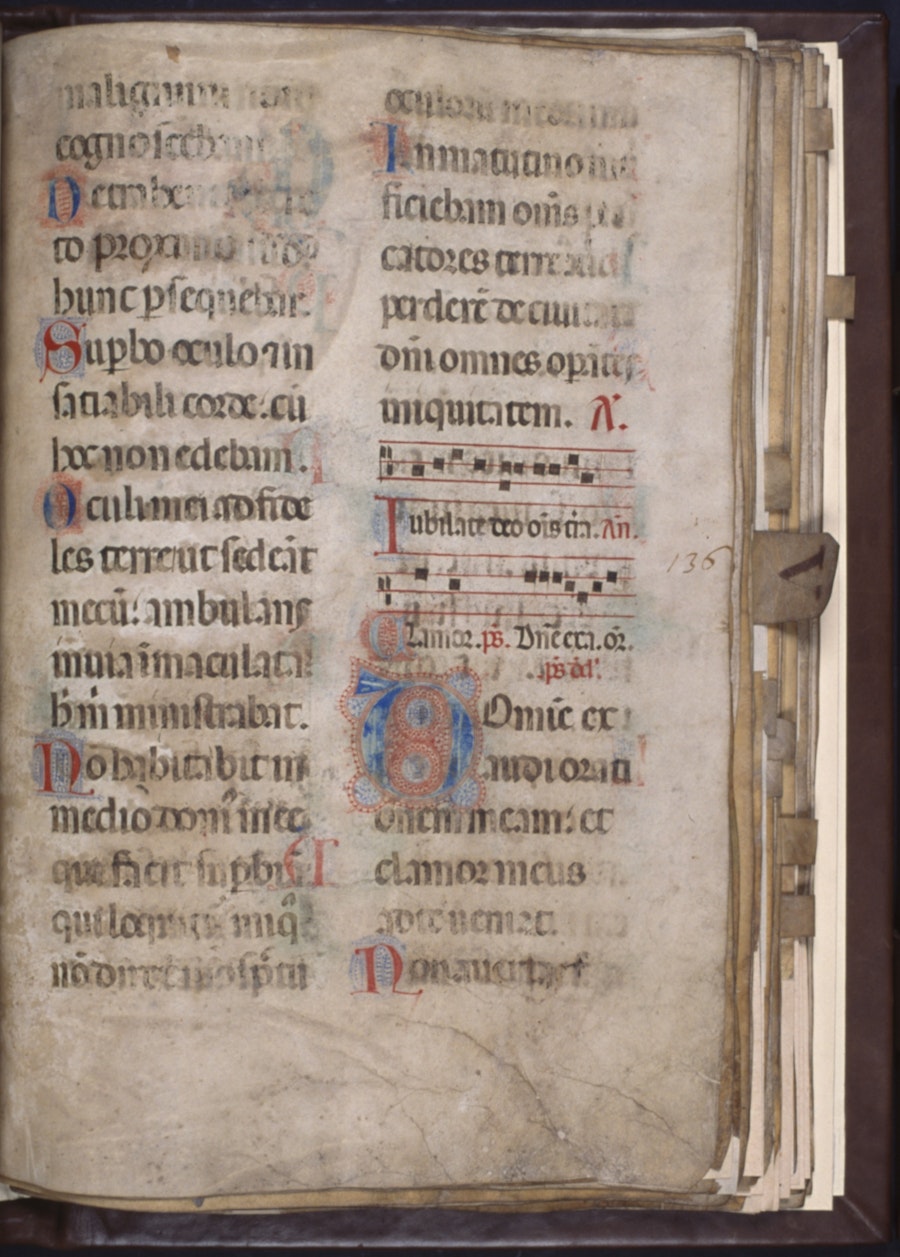 malignum non
cognoscebam
Detrahentem
to proximo suo
hunc psequebar.
Supbo oculo ⁊ in
satiabili corde: cū
hoc non edebam.
Oculi mei ad fide
les terre ut sedeāt
mecū: ambulans
in uia īmaculata
h̄ m̄ ministrabat.
Nō habitabit in
medio dom̄
que facit supbiā
qui loquitur iniq̄
oculorum meorum
In matutino inter
ficiebam om̄s pec
catores terre
perderē de ciuitate
dn̄i omnes opantes
iniquitatem. A.
Iubilate deo om̄s tr̄a. An̄.
Clamor. ps. Dn̄e exa. or̄.
Domīe ex
audi orati
onem meam: et
clamor meus
ad te ueniat.
Non auertas
136